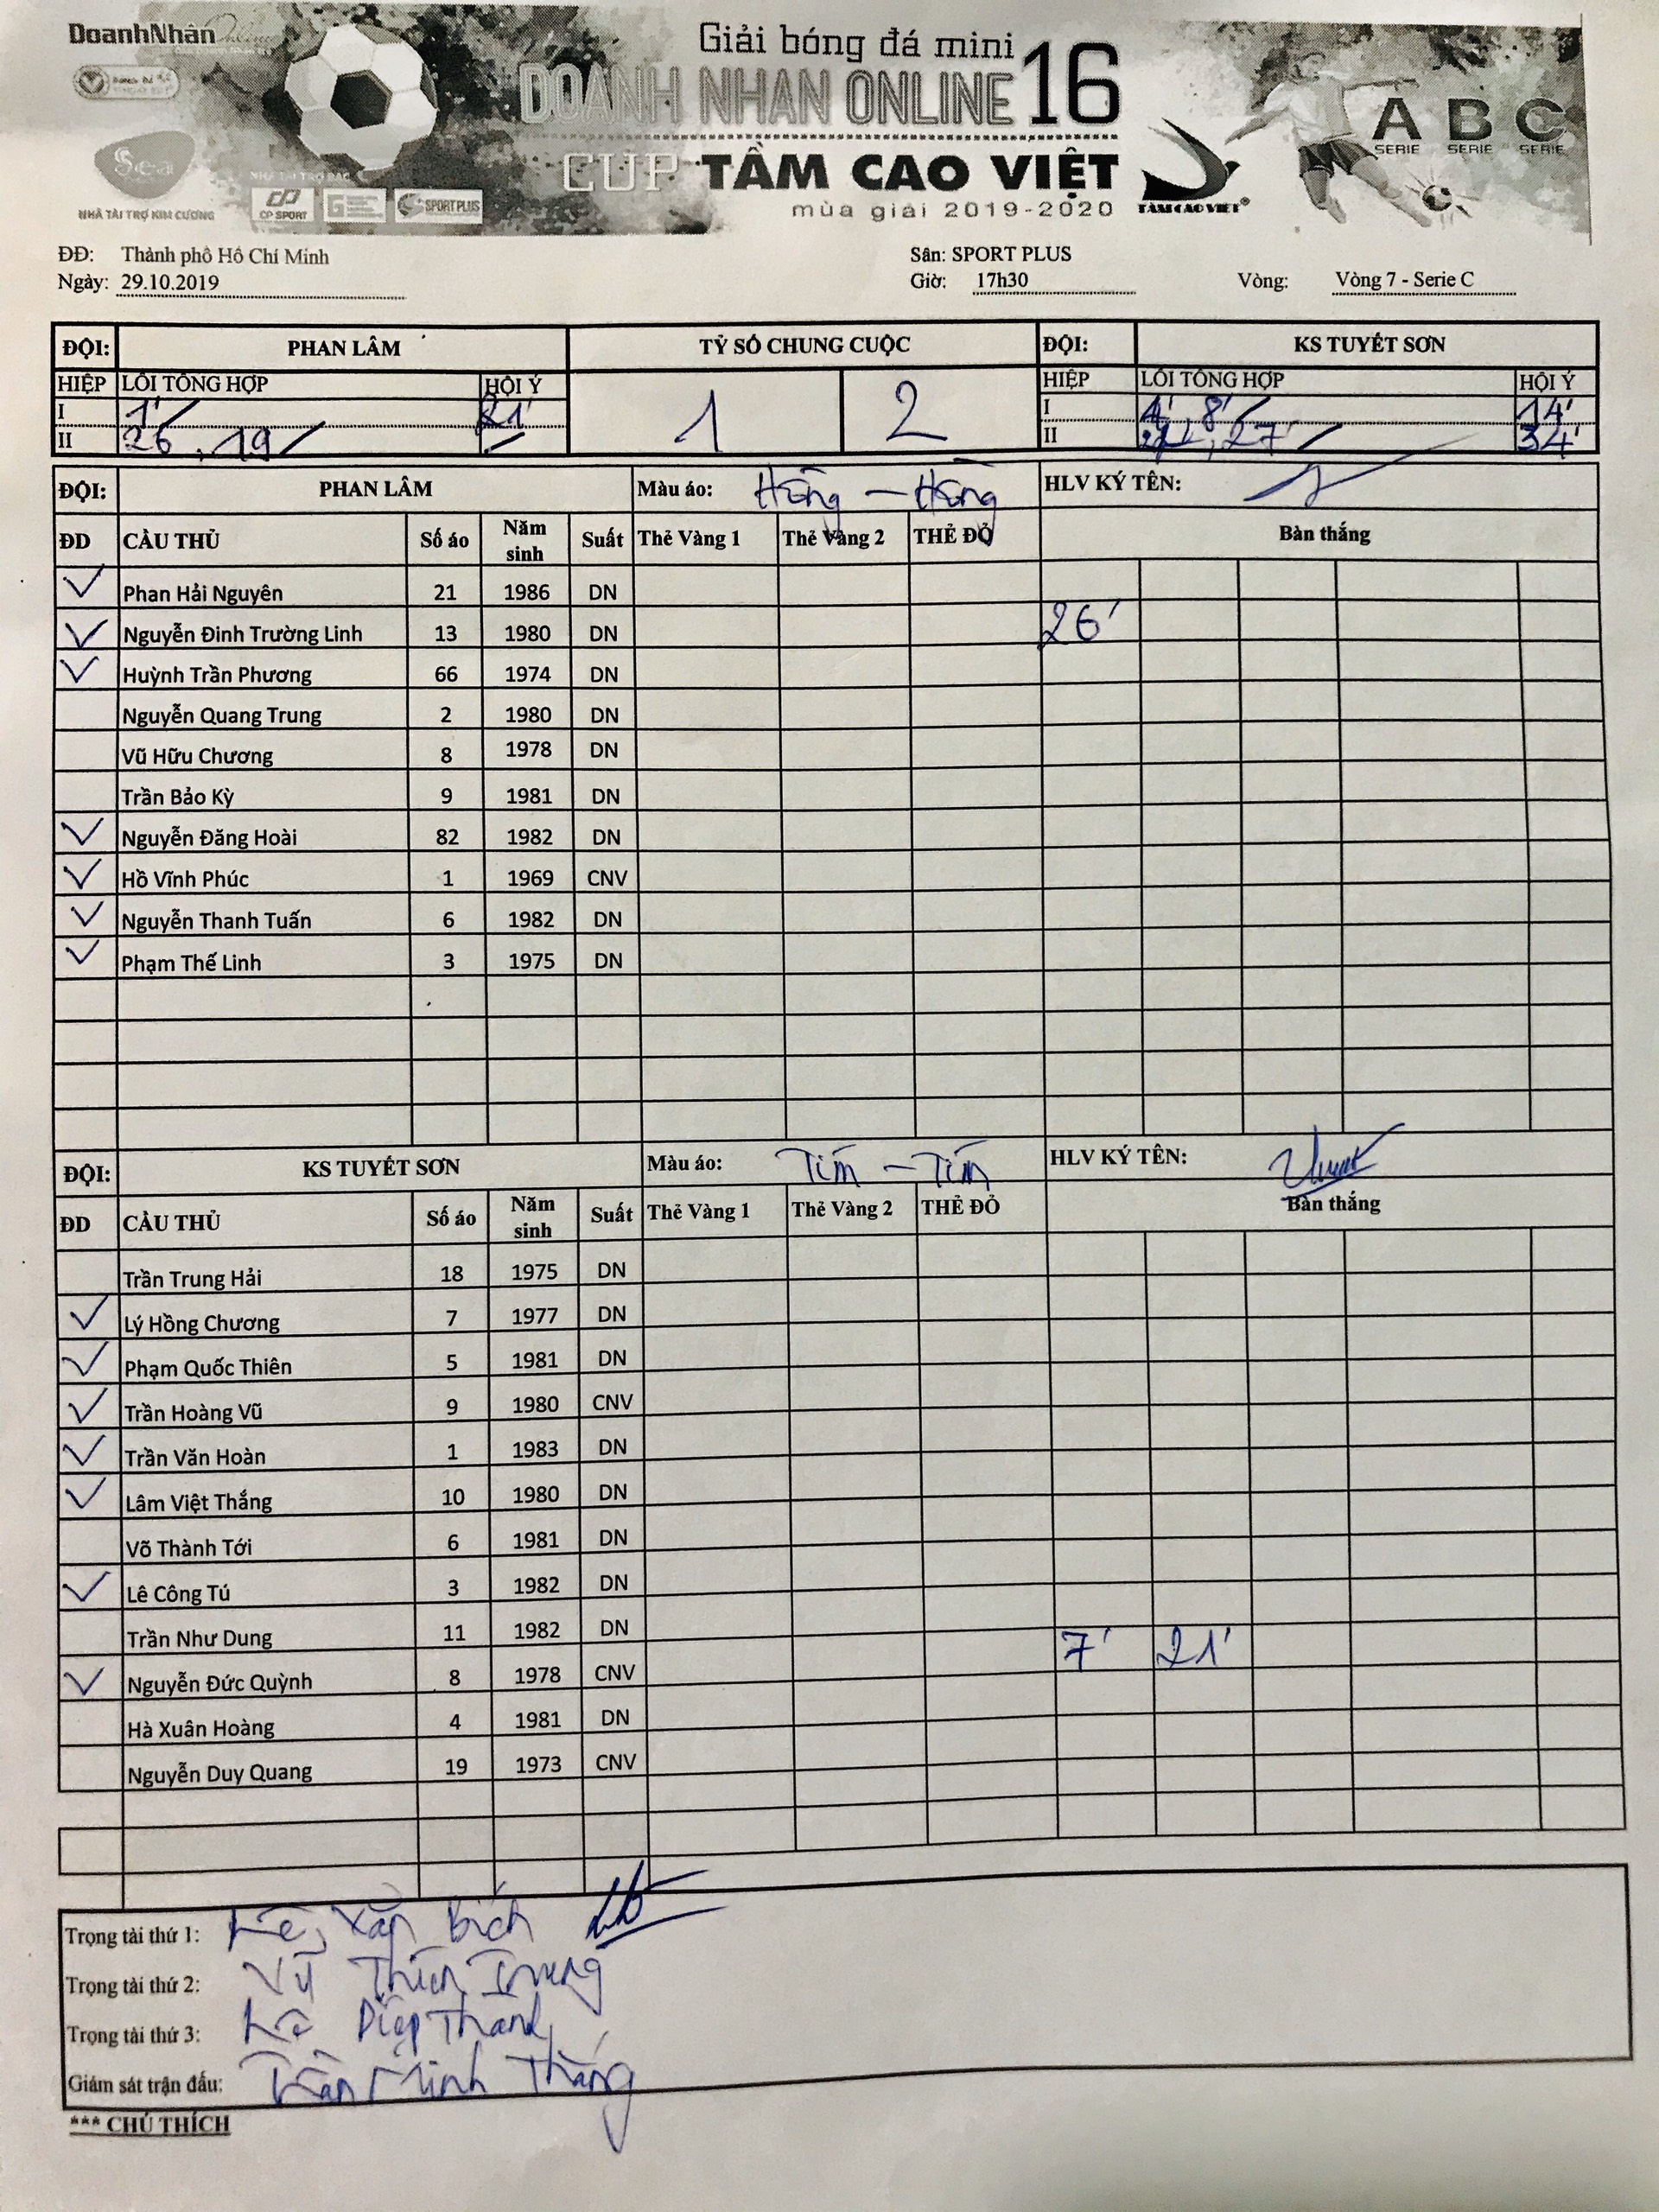 DoanhNhân Online
Giải bóng đá mini
DOANH NHAN ONLINE 16
A B C
SERIE SERIE SERIE
Sea
CUP TẦM CAO VIỆT
NHÀ TÀI TRỢ BẠC
NHÀ TÀI TRỢ KIM CƯƠNG
CP SPORT
SPORTPLUS
mùa giải 2019-2020
TẦM CAO VIỆT®
ĐĐ: Thành phố Hồ Chí Minh
Sân: SPORT PLUS
Ngày: 29.10.2019
Giờ: 17h30
Vòng: Vòng 7 - Serie C
ĐỘI: PHAN LÂM TỶ SỐ CHUNG CUỘC ĐỘI: KS TUYẾT SƠN
HIỆP LỖI TỔNG HỢP HỘI Ý 1 2 HIỆP LỖI TỔNG HỢP HỘI Ý
I 1' 21' I 4', 8' 14'
II 26, 19 II 27' 34'
ĐỘI: PHAN LÂM Màu áo: Hồng - Hồng HLV KÝ TÊN:
ĐD CẦU THỦ Số áo Năm sinh Suất Thẻ Vàng 1 Thẻ Vàng 2 THẺ ĐỎ Bàn thắng
✓ Phan Hải Nguyên 21 1986 DN
✓ Nguyễn Đinh Trường Linh 13 1980 DN 26'
✓ Huỳnh Trần Phương 66 1974 DN
Nguyễn Quang Trung 2 1980 DN
Vũ Hữu Chương 8 1978 DN
Trần Bảo Kỳ 9 1981 DN
✓ Nguyễn Đăng Hoài 82 1982 DN
✓ Hồ Vĩnh Phúc 1 1969 CNV
✓ Nguyễn Thanh Tuấn 6 1982 DN
✓ Phạm Thế Linh 3 1975 DN
ĐỘI: KS TUYẾT SƠN Màu áo: Tím - Tím HLV KÝ TÊN:
ĐD CẦU THỦ Số áo Năm sinh Suất Thẻ Vàng 1 Thẻ Vàng 2 THẺ ĐỎ Bàn thắng
Trần Trung Hải 18 1975 DN
✓ Lý Hồng Chương 7 1977 DN
✓ Phạm Quốc Thiên 5 1981 DN
✓ Trần Hoàng Vũ 9 1980 CNV
✓ Trần Văn Hoàn 1 1983 DN
✓ Lâm Việt Thắng 10 1980 DN
Võ Thành Tới 6 1981 DN
✓ Lê Công Tú 3 1982 DN
Trần Như Dung 11 1982 DN
✓ Nguyễn Đức Quỳnh 8 1978 CNV 7' 21'
Hà Xuân Hoàng 4 1981 DN
Nguyễn Duy Quang 19 1973 CNV
Trọng tài thứ 1: Lê Bích
Trọng tài thứ 2: Vũ Trung
Trọng tài thứ 3: Diệp Thanh
Giám sát trận đấu: Trần Minh Thắng
*** CHÚ THÍCH